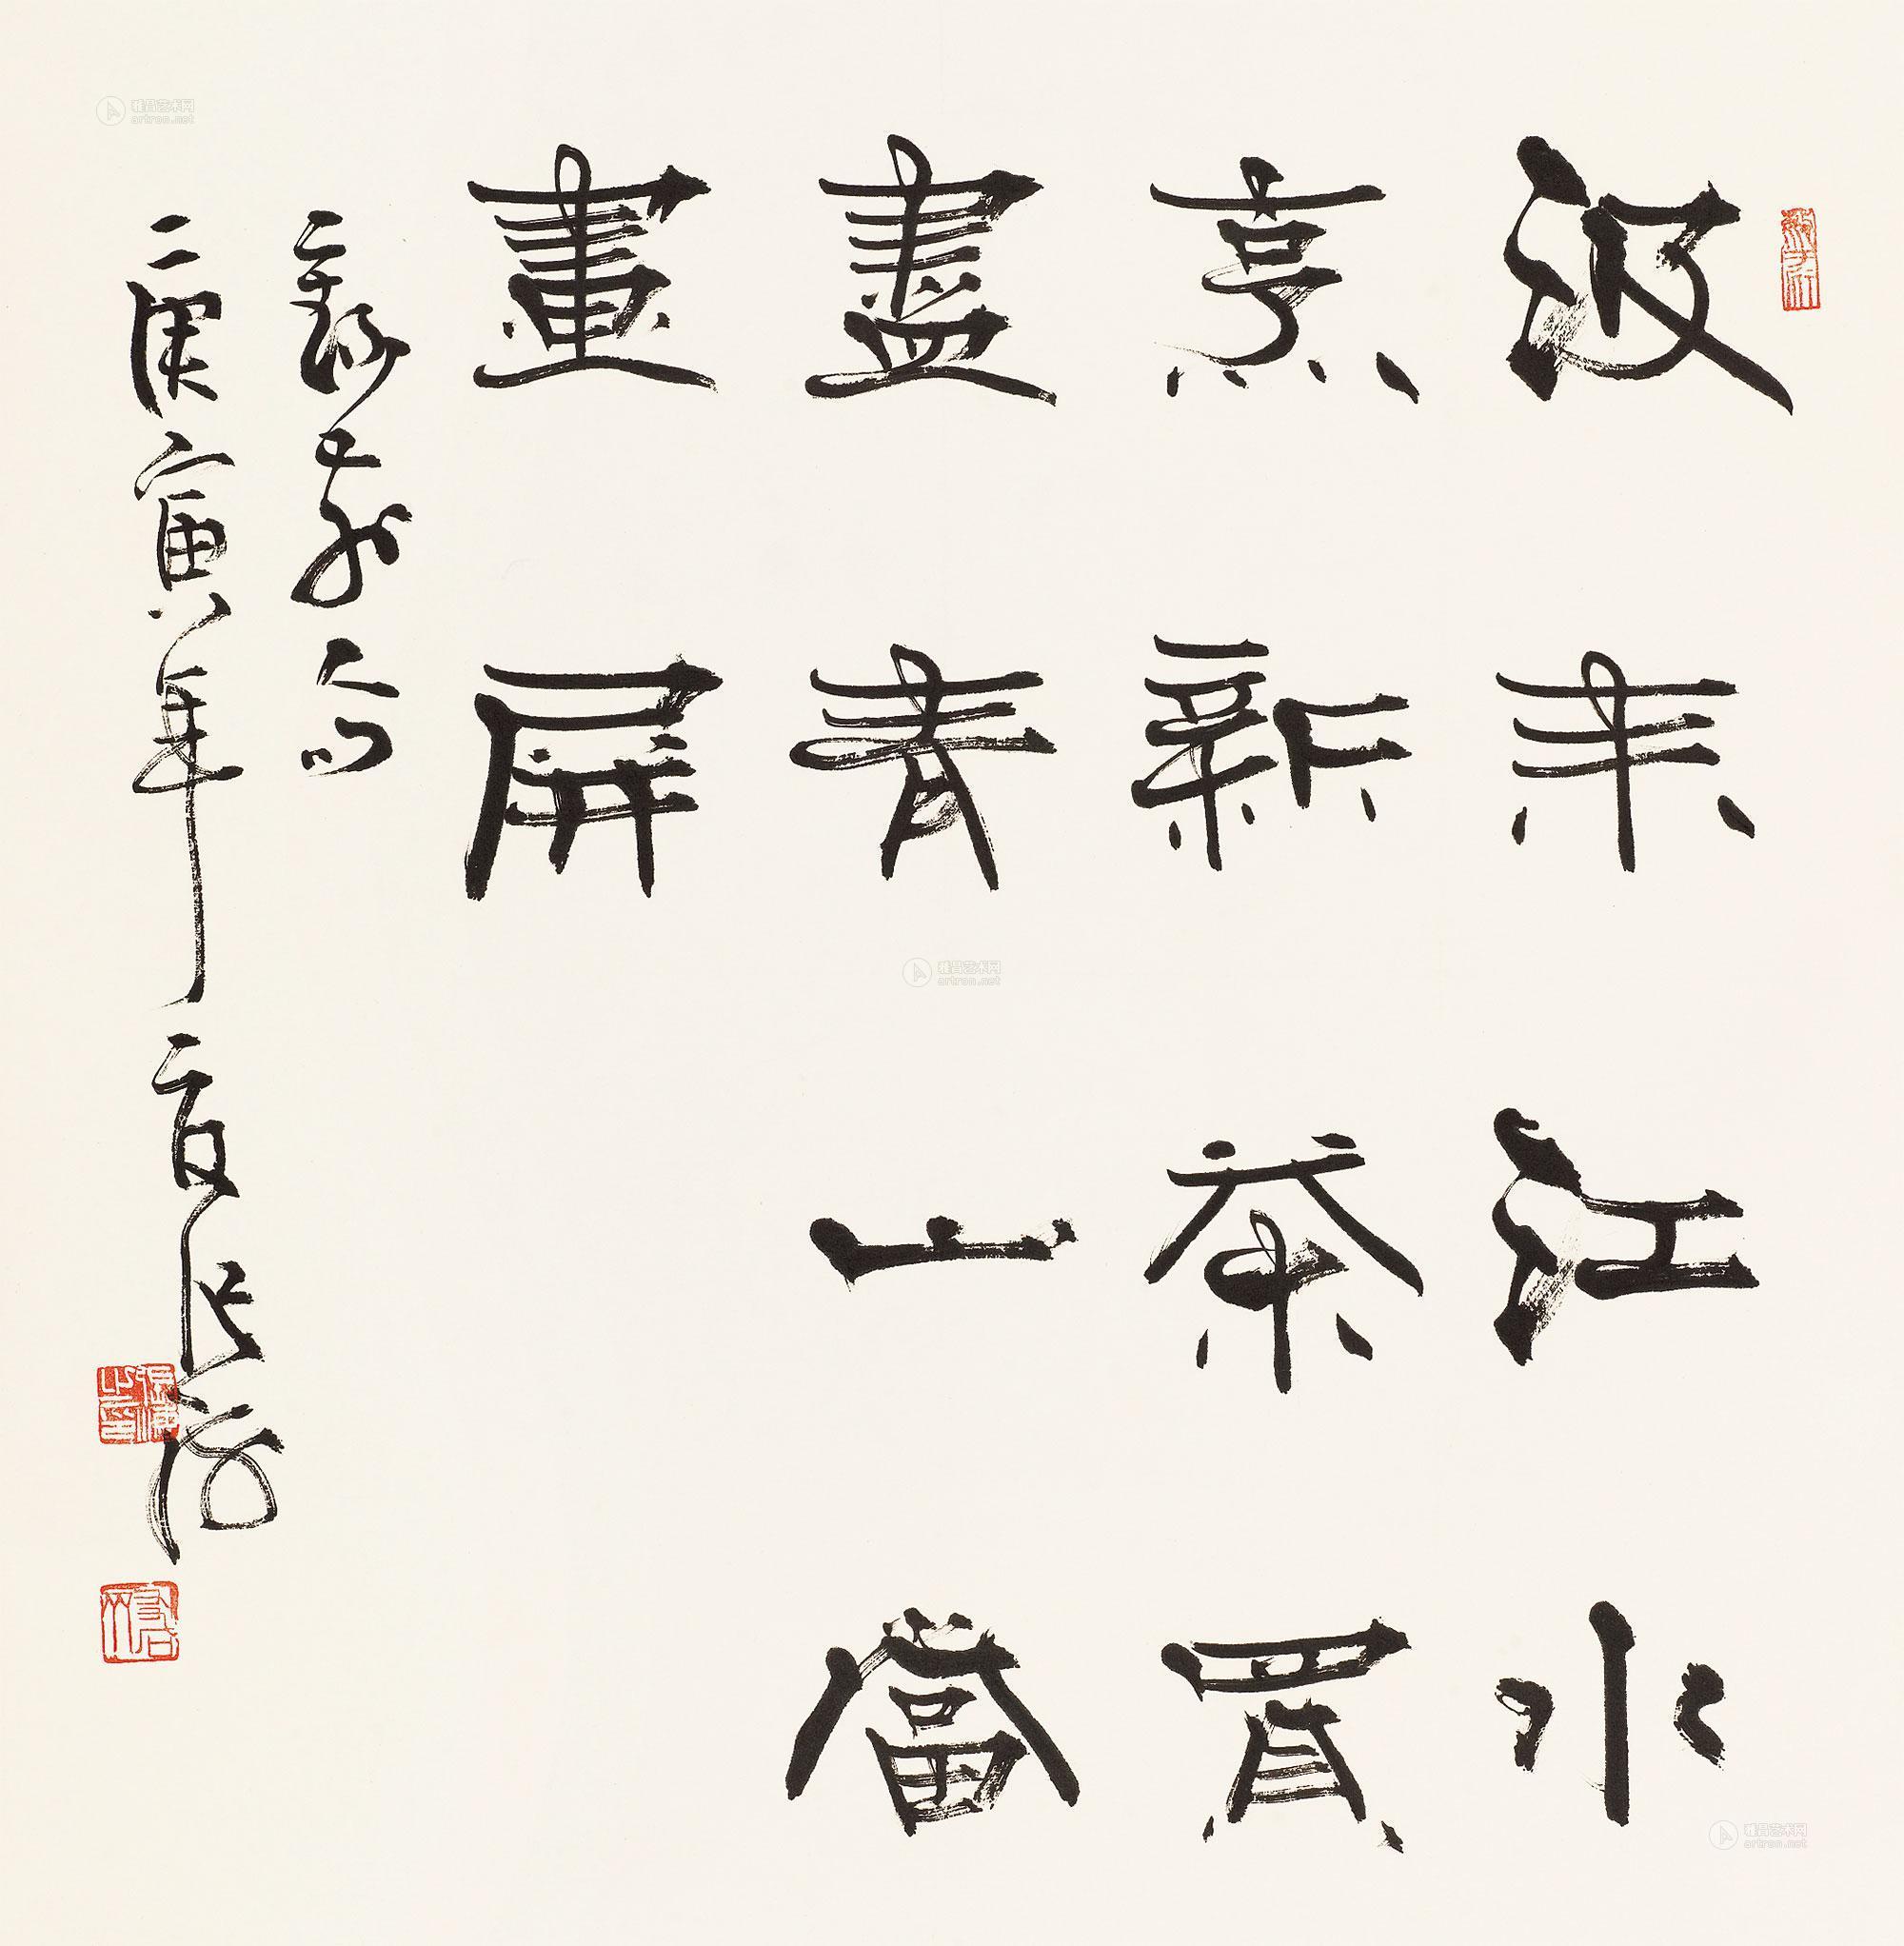 汲来江水
烹新茶買
盡青山當
畫屏
錄前人句
庚寅年夏张海
雅昌艺术网
artron.net
雅昌艺术网
artron.net
雅昌艺术网
artron.net